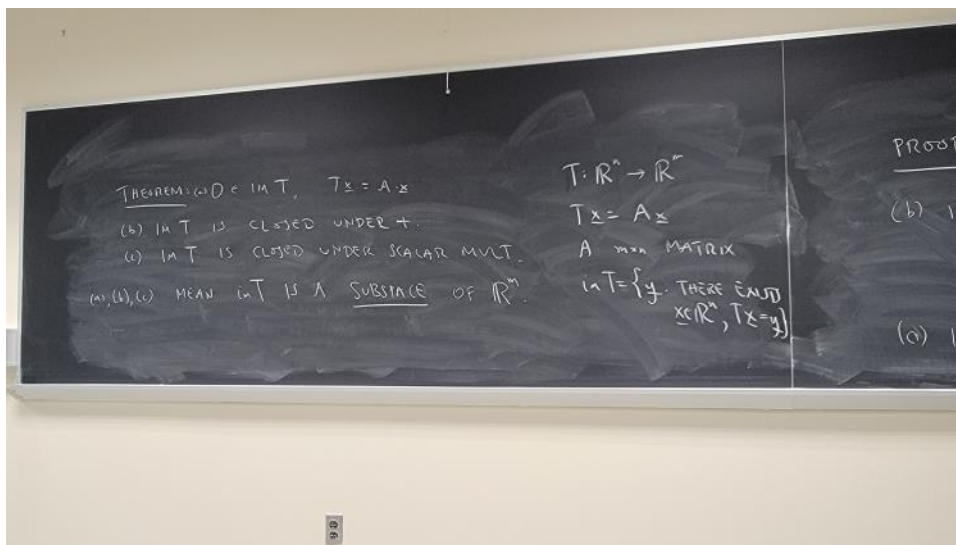 THEOREM: (a) 0 ∈ im T, Tx = A·x
(b) im T IS CLOSED UNDER +.
(c) im T IS CLOSED UNDER SCALAR MULT.
(a),(b),(c) MEAN im T IS A SUBSPACE OF ℝᵐ.
T: ℝⁿ → ℝᵐ
Tx = Ax
A m×n MATRIX
im T = {y. THERE EXISTS
x∈ℝⁿ, Tx=y}
PROOF
(b)
(a)